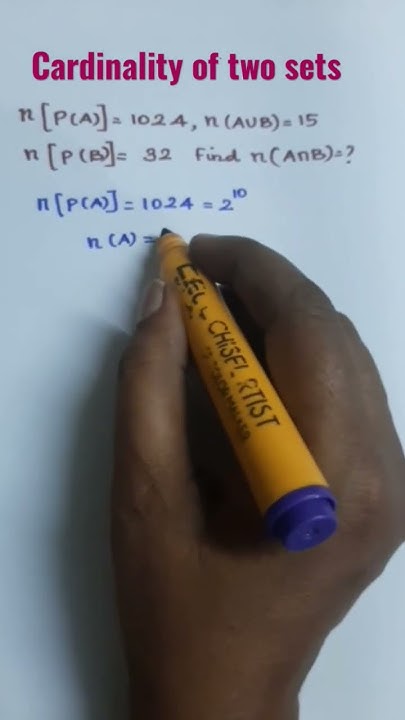 Cardinality of two sets
n[P(A)] = 1024, n(A∪B) = 15
n[P(B)] = 32 Find n(A∩B) = ?
n[P(A)] = 1024 = 2¹⁰
n(A) =
CHiSEL